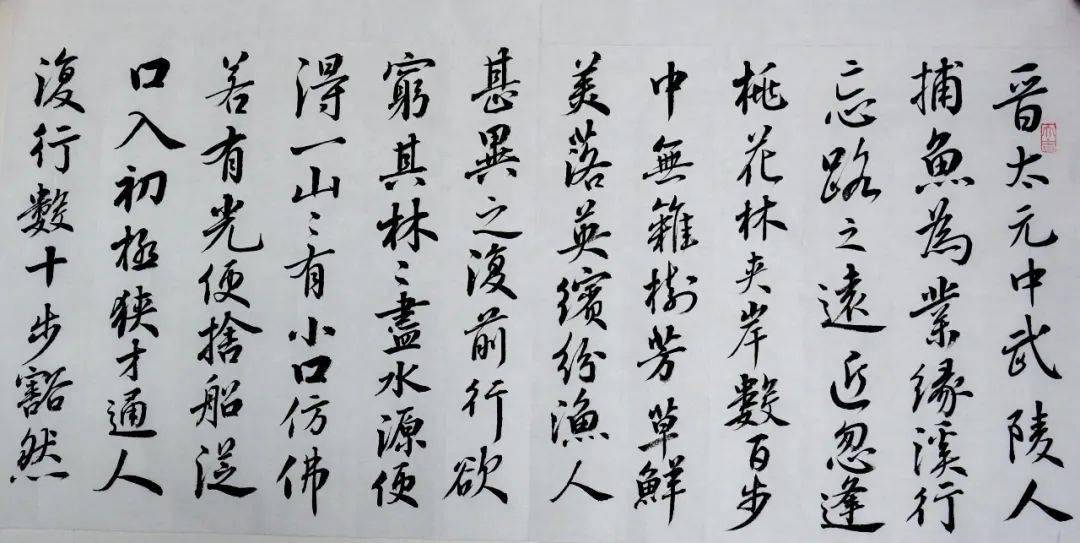 晉太元中武陵人
捕魚為業緣溪行
忘路之遠近忽逢
桃花林夾岸數百步
中無雜樹芳草鮮
美落英繽紛漁人
甚異之復前行欲
窮其林〻盡水源便
得一山〻有小口仿佛
若有光便捨船從
口入初極狹才通人
復行數十步豁然